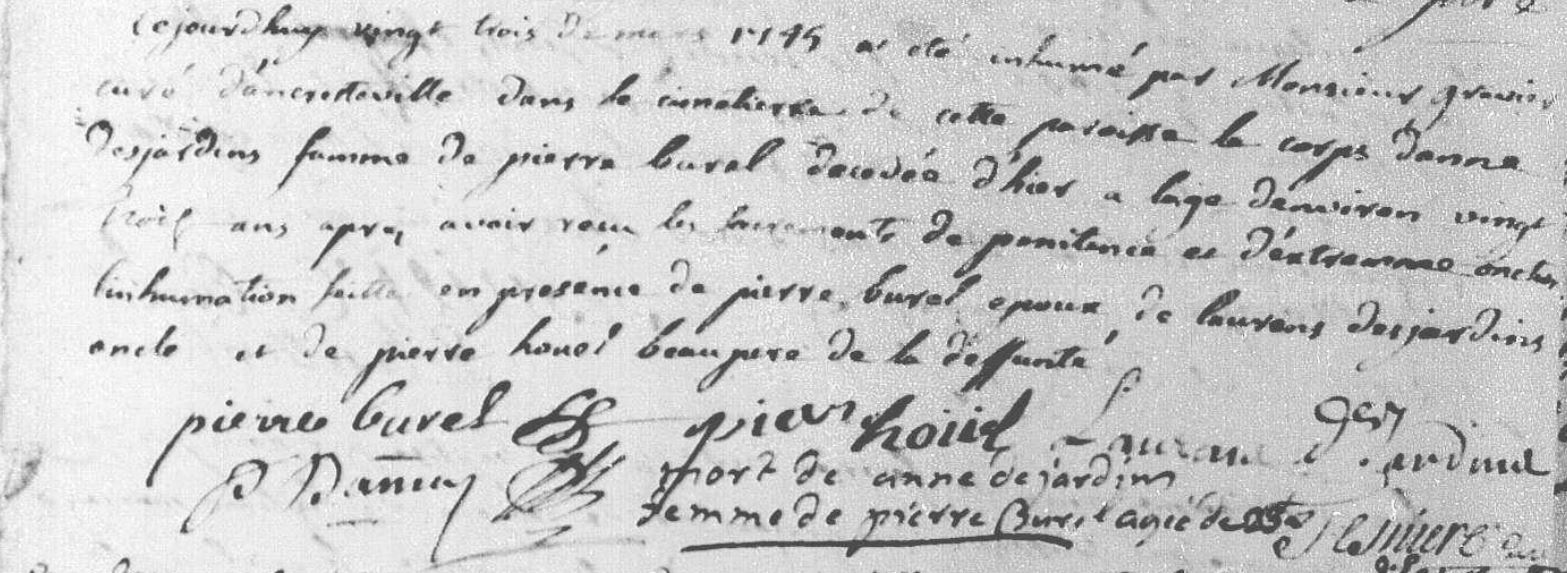 Cejourdhuy vingt trois de mars 1745 at eté inhumé par Monsieur gravier
curé d'ancretteville dans le cimetierre de cette paroisse le corps danne
desjardins famme de pierre burel decedée d'hier a lage denviron vingt
trois ans aprés avoir reçu les sacrements de penitence et d'extremme onction
linhumation faitte en présence de pierre burel epoux de laurens desjardins
oncle et de pierre houel beaupere de la deffunte
pierre burel pierre houel Laurans des jardins
mort de anne dejardin
femme de pierre Burel agié de